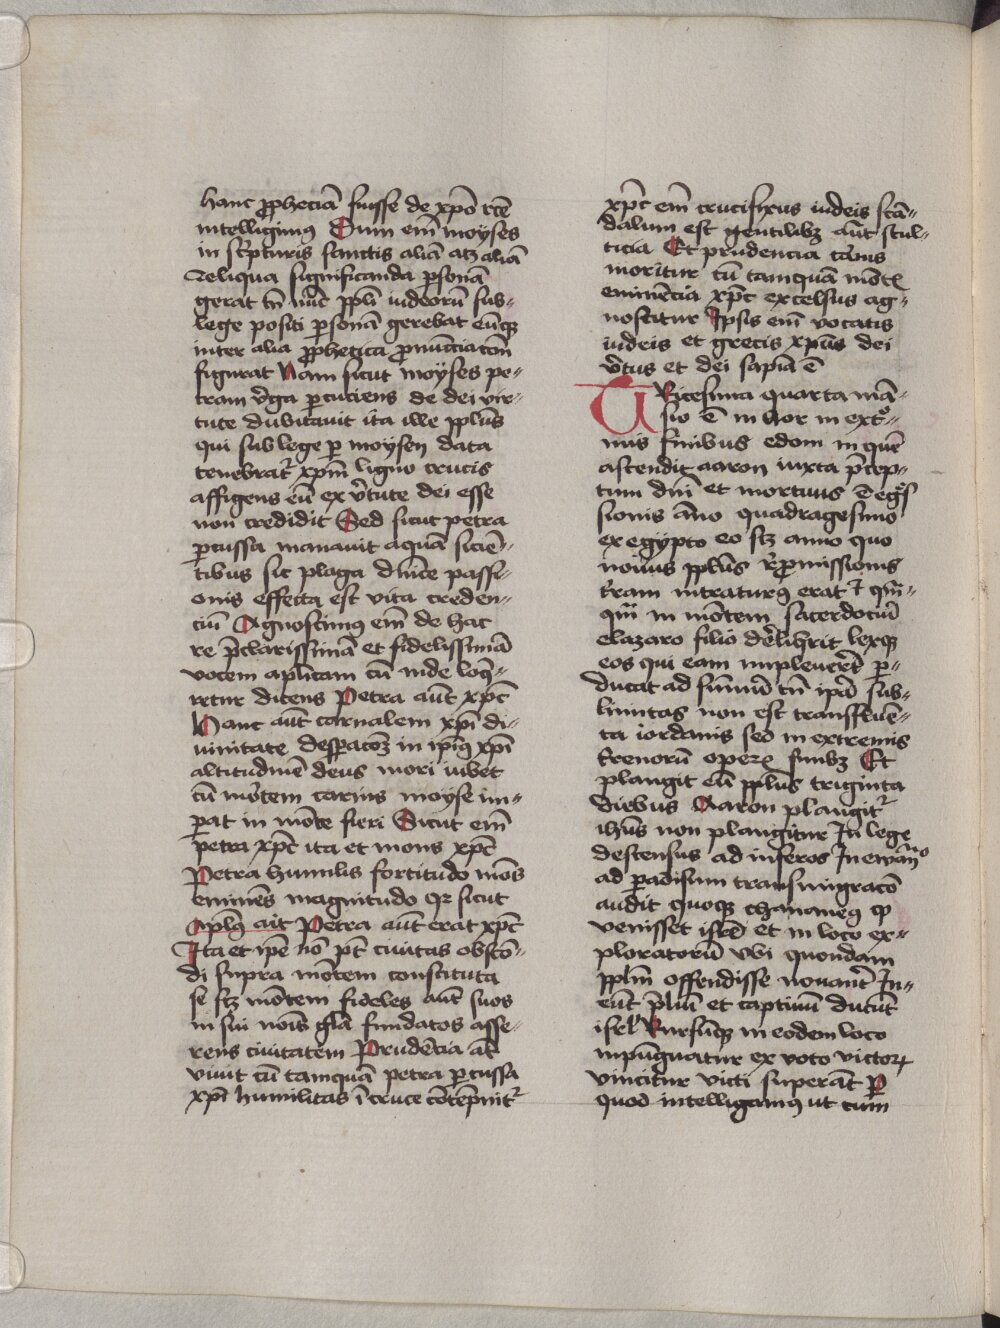 hanc ꝓpheciā fuisse de xp̄o rc̄te
intelligimꝰ Cum em̄ moyses
in sc̄pturis sanctis aliā atꝫ aliā
Reliqua significanda ꝑsonā
gerat tn̄ nūc ppl̄i iudeorū sub-
lege positi ꝑsonā gerebat eūqꝫ
inter alia ꝓphetica ꝓnūciac̄on̄
figurat Nam sicut moyses pe-
tram v̄ga ꝑcuciens de dei vir-
tute dubitauit ita ille ppl̄us
qui sub lege ꝑ moysen data
tenebrat᷑ xpm̄ ligno crucis
affigens eū ex v̄tute dei esse
non credidit Sed sicut petra
ꝑcussa manauit aquā sicie-
tibus sic plaga dn̄ice passi-
onis effecta est vita creden-
ciū Agnoscimꝰ em̄ de hac
re p̄clarissimā et fidelissimā
vocem apl̄icam cū inde loq̄-
retur dicens Petra aūt xp̄c
Hanc aūt carnalem xp̄i di-
uinitate desꝑacōꝫ in ip̄iꝰ xp̄i
altitudinē deus mori iubet
cū mōtem carnis moyse im-
ꝑat in mōte fieri Sicut em̄
petra xp̄c ita et mons xp̄c
Petra humilis fortitudo mōs
eminēs magnitudo qꝛ sicut
apl̄s ait Petra aūt erat xp̄c
Ita et ip̄e nō pt̄ ciuitas abscō-
di supra mōtem constituta
se sꝫ mōtem fideles aūt suos
in sui nōis gl̄a fundatos asse-
rens ciuitatem Prudēcia at̄
viuit cū tamquā petra ꝑcussa
xp̄i humilitas ī cruce cōtēpnit᷑
xp̄c em̄ crucifixus iudeis scā-
dalum est gentilibꝫ aūt stul-
ticia Et prudencia carnis
moritur cū tamquā mōtꝭ
eminēcia xp̄c excelsus ag-
noscitur Ipsis em̄ vocatis
iudeis et grecis xp̄us dei
v̄tus et dei sapīa ē
Vicesima quarta mā-
sio ē in hor in ext᷑-
mis finibus edom in quē
ascendit aaron iuxta p̄cep-
tum dn̄i et mortuus ē egᷣs
sionis āno quadragesimo
ex egypto eo sꝫ anno quo
nouus ppl̄us r̄ꝓmissionis
t̄ram intraturꝰ erat ⁊ qm̄-
qm̄ in mōtem sacerdociū
elazaro filio dēlih̄rit lexqꝫ
eos qui eam impleuer̄t ꝑ-
ducat ad sūmū tn̄ ip̄a sub-
limitas non est transfluē-
ta iordanis sed in extremis
trenorū operꝭ finibꝫ Et
plangit eū ppl̄us triginta
diebus Aaron plangit᷑
ih̄us non plangitur In lege
descensus ad inferos In ewāḡᵒ
ad ꝑadisum transmigracō
audit quoqꝫ chananeꝰ ꝙ
venisset isrl̄ et in loco ex-
ploratorū vbi quondam
ppl̄m offendisse nouant̄ In-
eūt p̄liū et captiuū ducūt
isrl̄ Rursūqꝫ in eodem loco
inpūgnatur ex voto victorꝭ
vincitur victi superāt ꝑ
quod intelligamꝰ ut cum